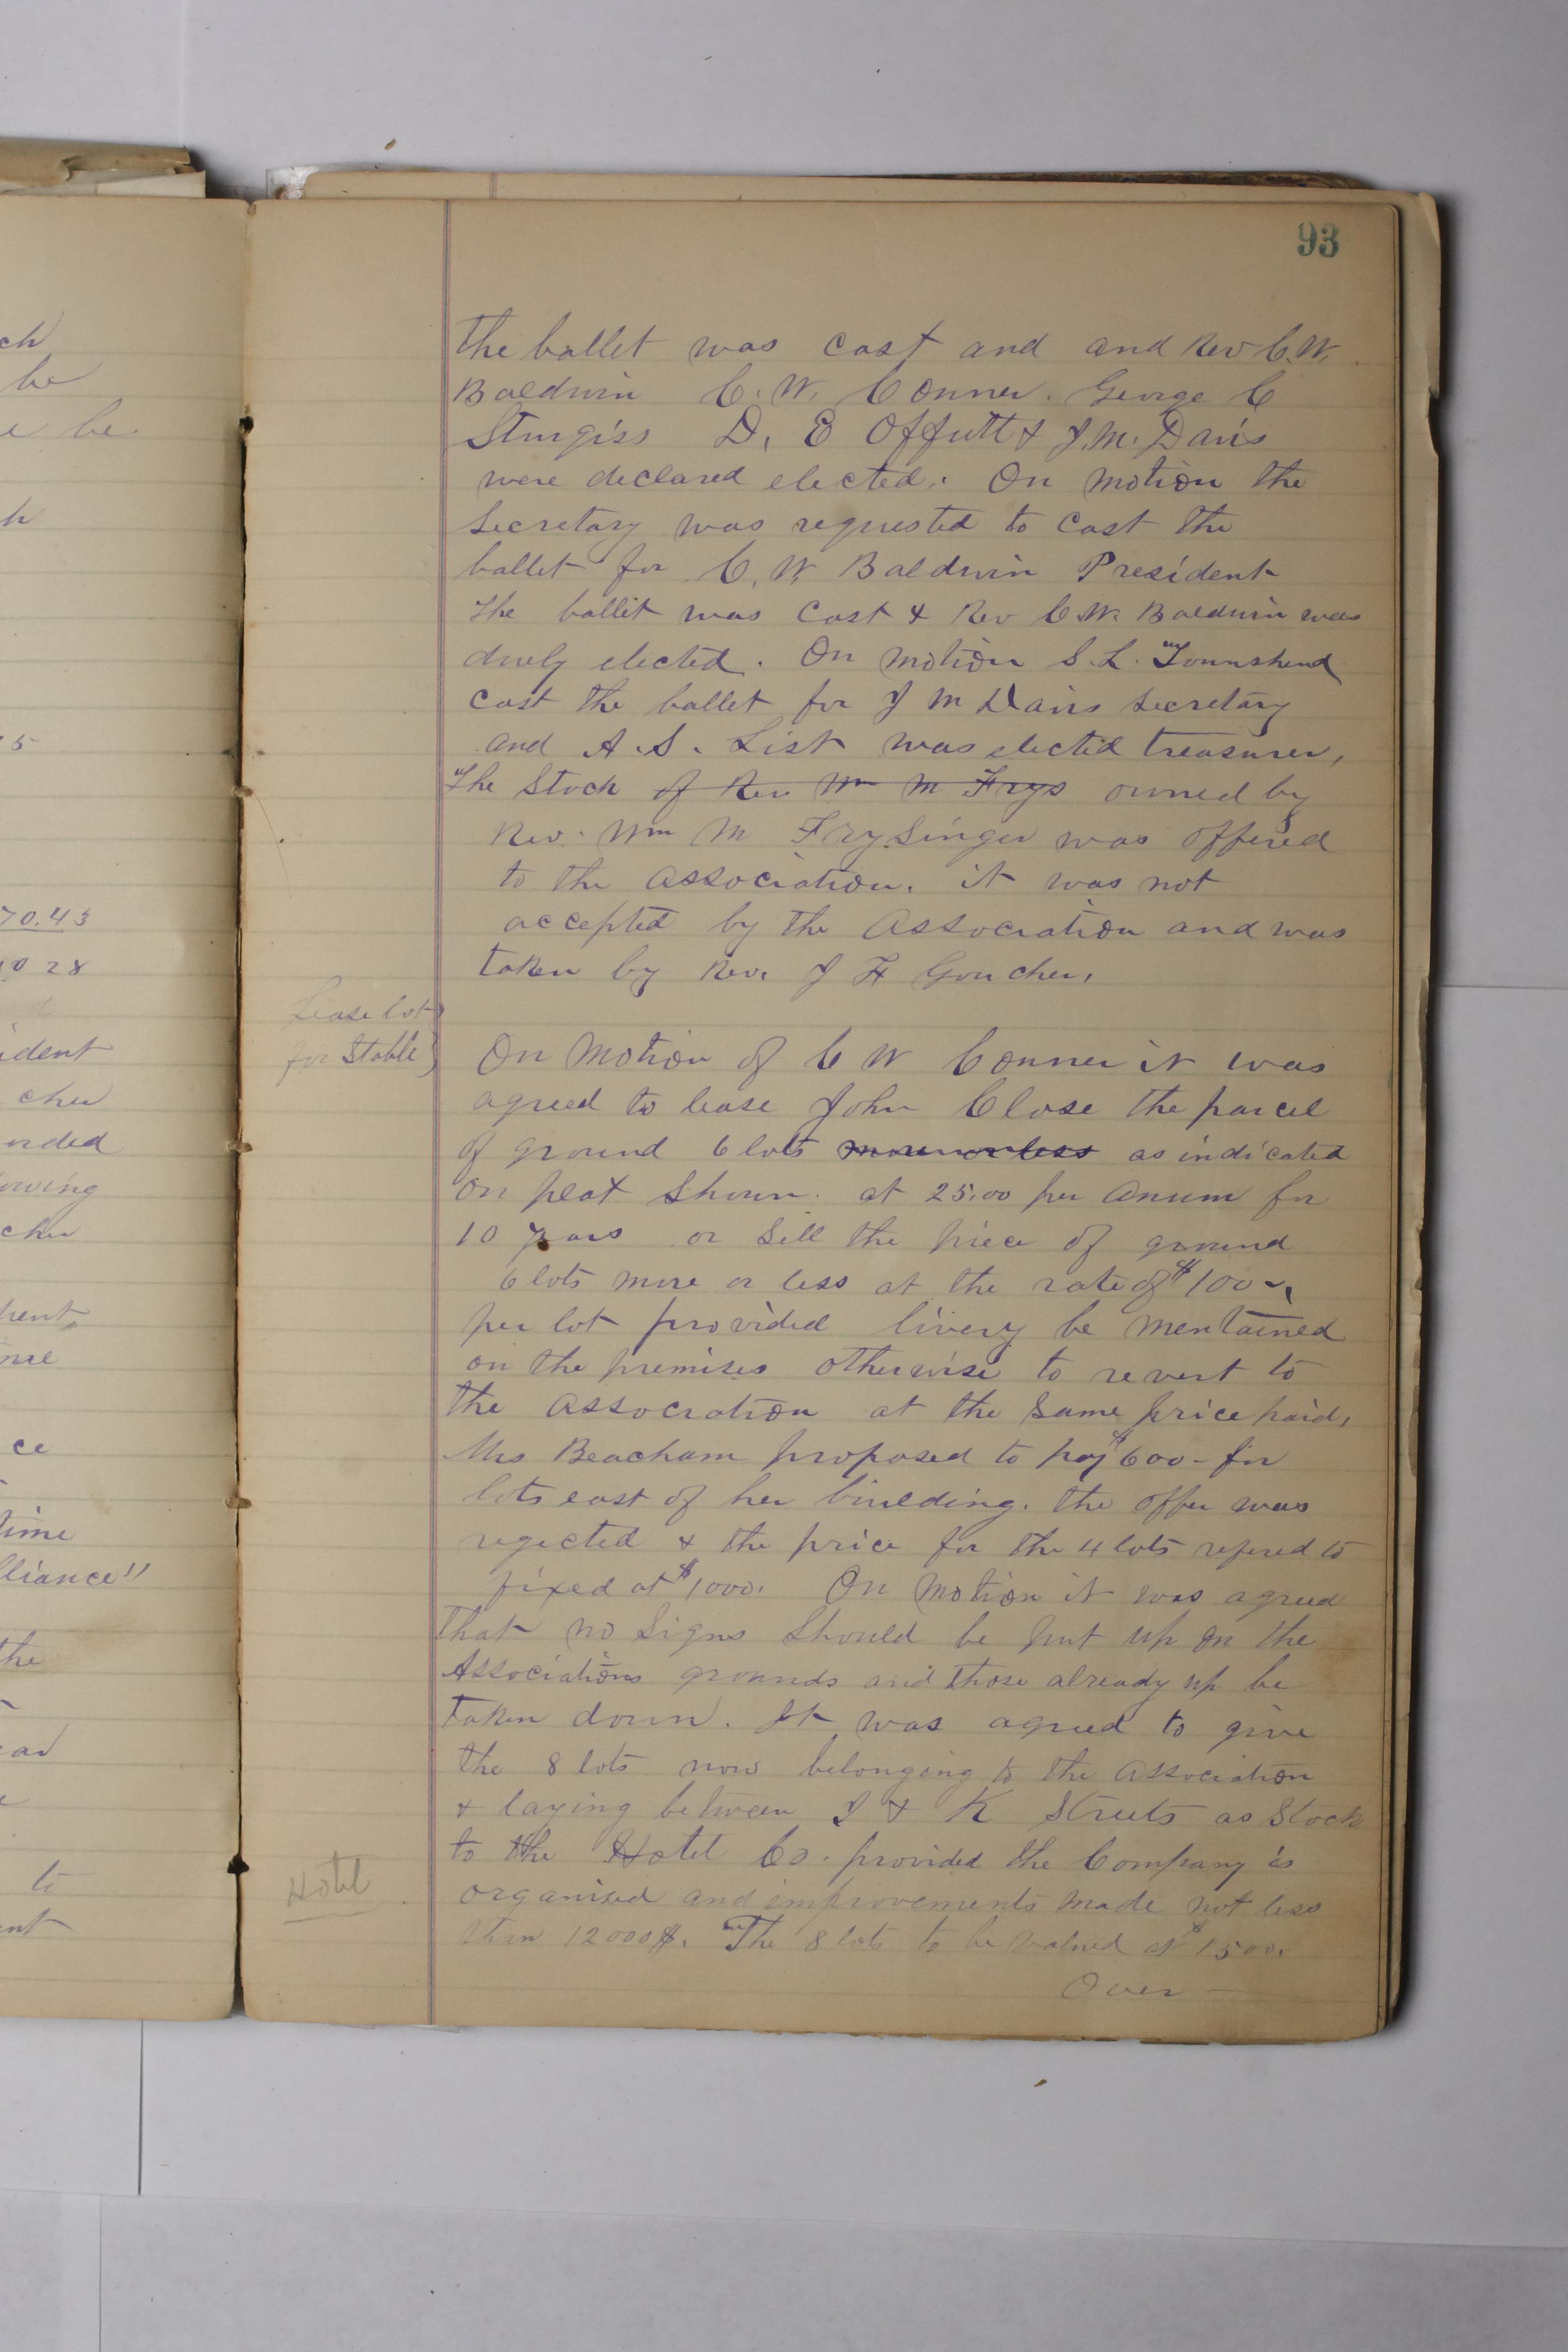 ch
be
e be
h
5
70.43
28
ident
cher
nded
owing
cher
ment
ce
time
lliance"
the
ar
to
ent
93
The ballet was cast and and Rev C.W.
Baldwin C. W. Conner. George C
Sturgiss D. E Offutt & J.M. Davis
were declared elected. On motion the
Secretary was requested to Cast the
ballet for C. W. Baldwin President
The ballit was Cast & Rev C.W. Baldwin was
duely elected. On motion S. L. Townshend
Cast the ballet for J M Davis Secretary
and A. S. List was elected treasurer,
The Stock of Rev Wm M Frys owned by
Rev. Wm M FrySinger was offered
to the Association. it was not
accepted by the Association and was
taken by Rev. J F Goucher.
Lease lot
for Stable
On Motion of C W Conner it was
agreed to lease John Close the parcel
of ground 6 lots more or less as indicated
on plat Shown. at 25.00 per Anum for
10 years or Sell the piece of ground
6 lots more or less at the rate of $100-
per lot provided livery be mentained
on the premises otherwise to revert to
the Association at the Same price paid.
Mrs Beacham proposed to pay $600- for
lots east of her building. the offer was
rejected & the price for the 4 lots refered to
fixed at $1000. On Motion it was agreed
that no Signs Should be put up on the
Associations grounds and those already up be
taken down. It was agreed to give
the 8 lots now belonging to the Association
& laying between I & K Streets as Stock
to the Hotel Co. provided the Company is
Hotel
organised and improvements made not less
than 12000$. The 8 lots to be valued at $1500.
Over —